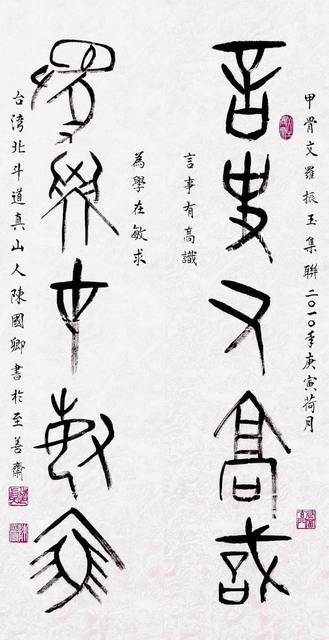 甲骨文羅振玉集聯二〇一〇年庚寅荷月
言事有高識
言事有高識
為學在敏求
為學在敏求
台湾北斗道真山人陳國卿書於至善齋